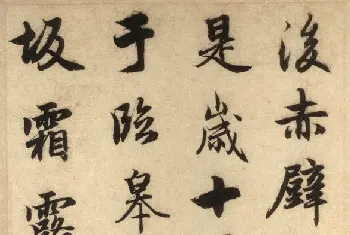 後赤壁
是歲十
于臨皋
坂霜露